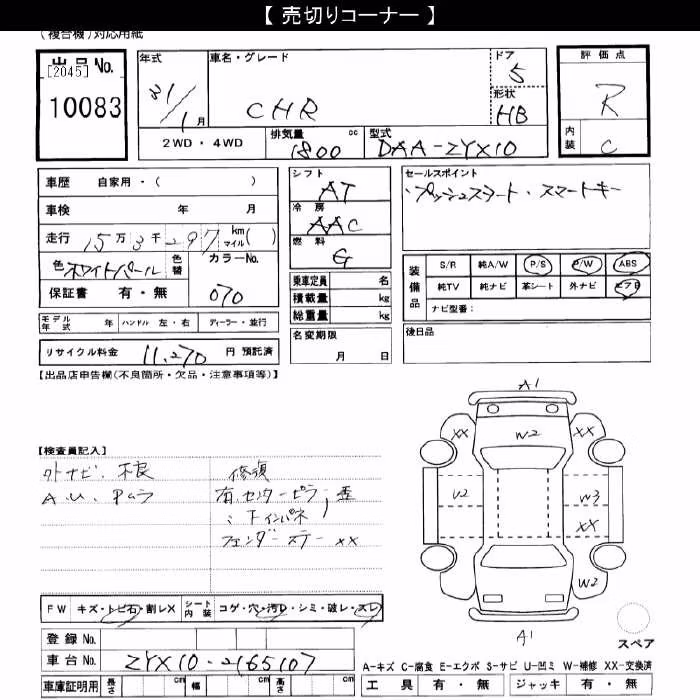 【 売切りコーナー 】
(複合機)対応用紙
出品No.
[2045]
10083
年式
31/1月
車名・グレード
CHR
ドア
5
形状
HB
評価点
R
内装
C
2WD・4WD
排気量 cc
1800
型式
DAA-ZYX10
車歴 自家用・( )
車検 年 月
走行 15万3千297 km マイル( )
色 ホワイトパール
色替
カラーNo.
070
保証書 有・無
シフト
AT
冷房
AAC
燃料
G
乗車定員 名
積載量 kg
総重量 kg
セールスポイント
・プッシュスタート・スマートキー
装備品
S/R 純A/W P/S P/W ABS
純TV 純ナビ 革シート 外ナビ エアB
ナビ型番:
モデル年式 年 ハンドル 左・右 ディーラー・並行
リサイクル料金 11,270 円 預託済
名変期限
月 日
後日品
【出品店申告欄(不良箇所・欠品・注意事項等)】
【検査員記入】
外ナビ、不良
A.U. Pムラ
修復
有 センターピラ; 歪
; Fインパネ
フェンダーステー xx
A1
XX
W2
XX
U2
W3
XX
W2
A1
スペア
FW キズ・トビ石・割レX シート内装 コゲ・穴・汚レ・シミ・破レ・スレ
登録No.
車台No. ZYX10-2165107
車庫証明用 長さ cm 幅 cm 高さ cm
A-キズ C-腐食 E-エクボ S-サビ U-凹ミ W-補修 XX-交換済
工具 有・無 ジャッキ 有・無